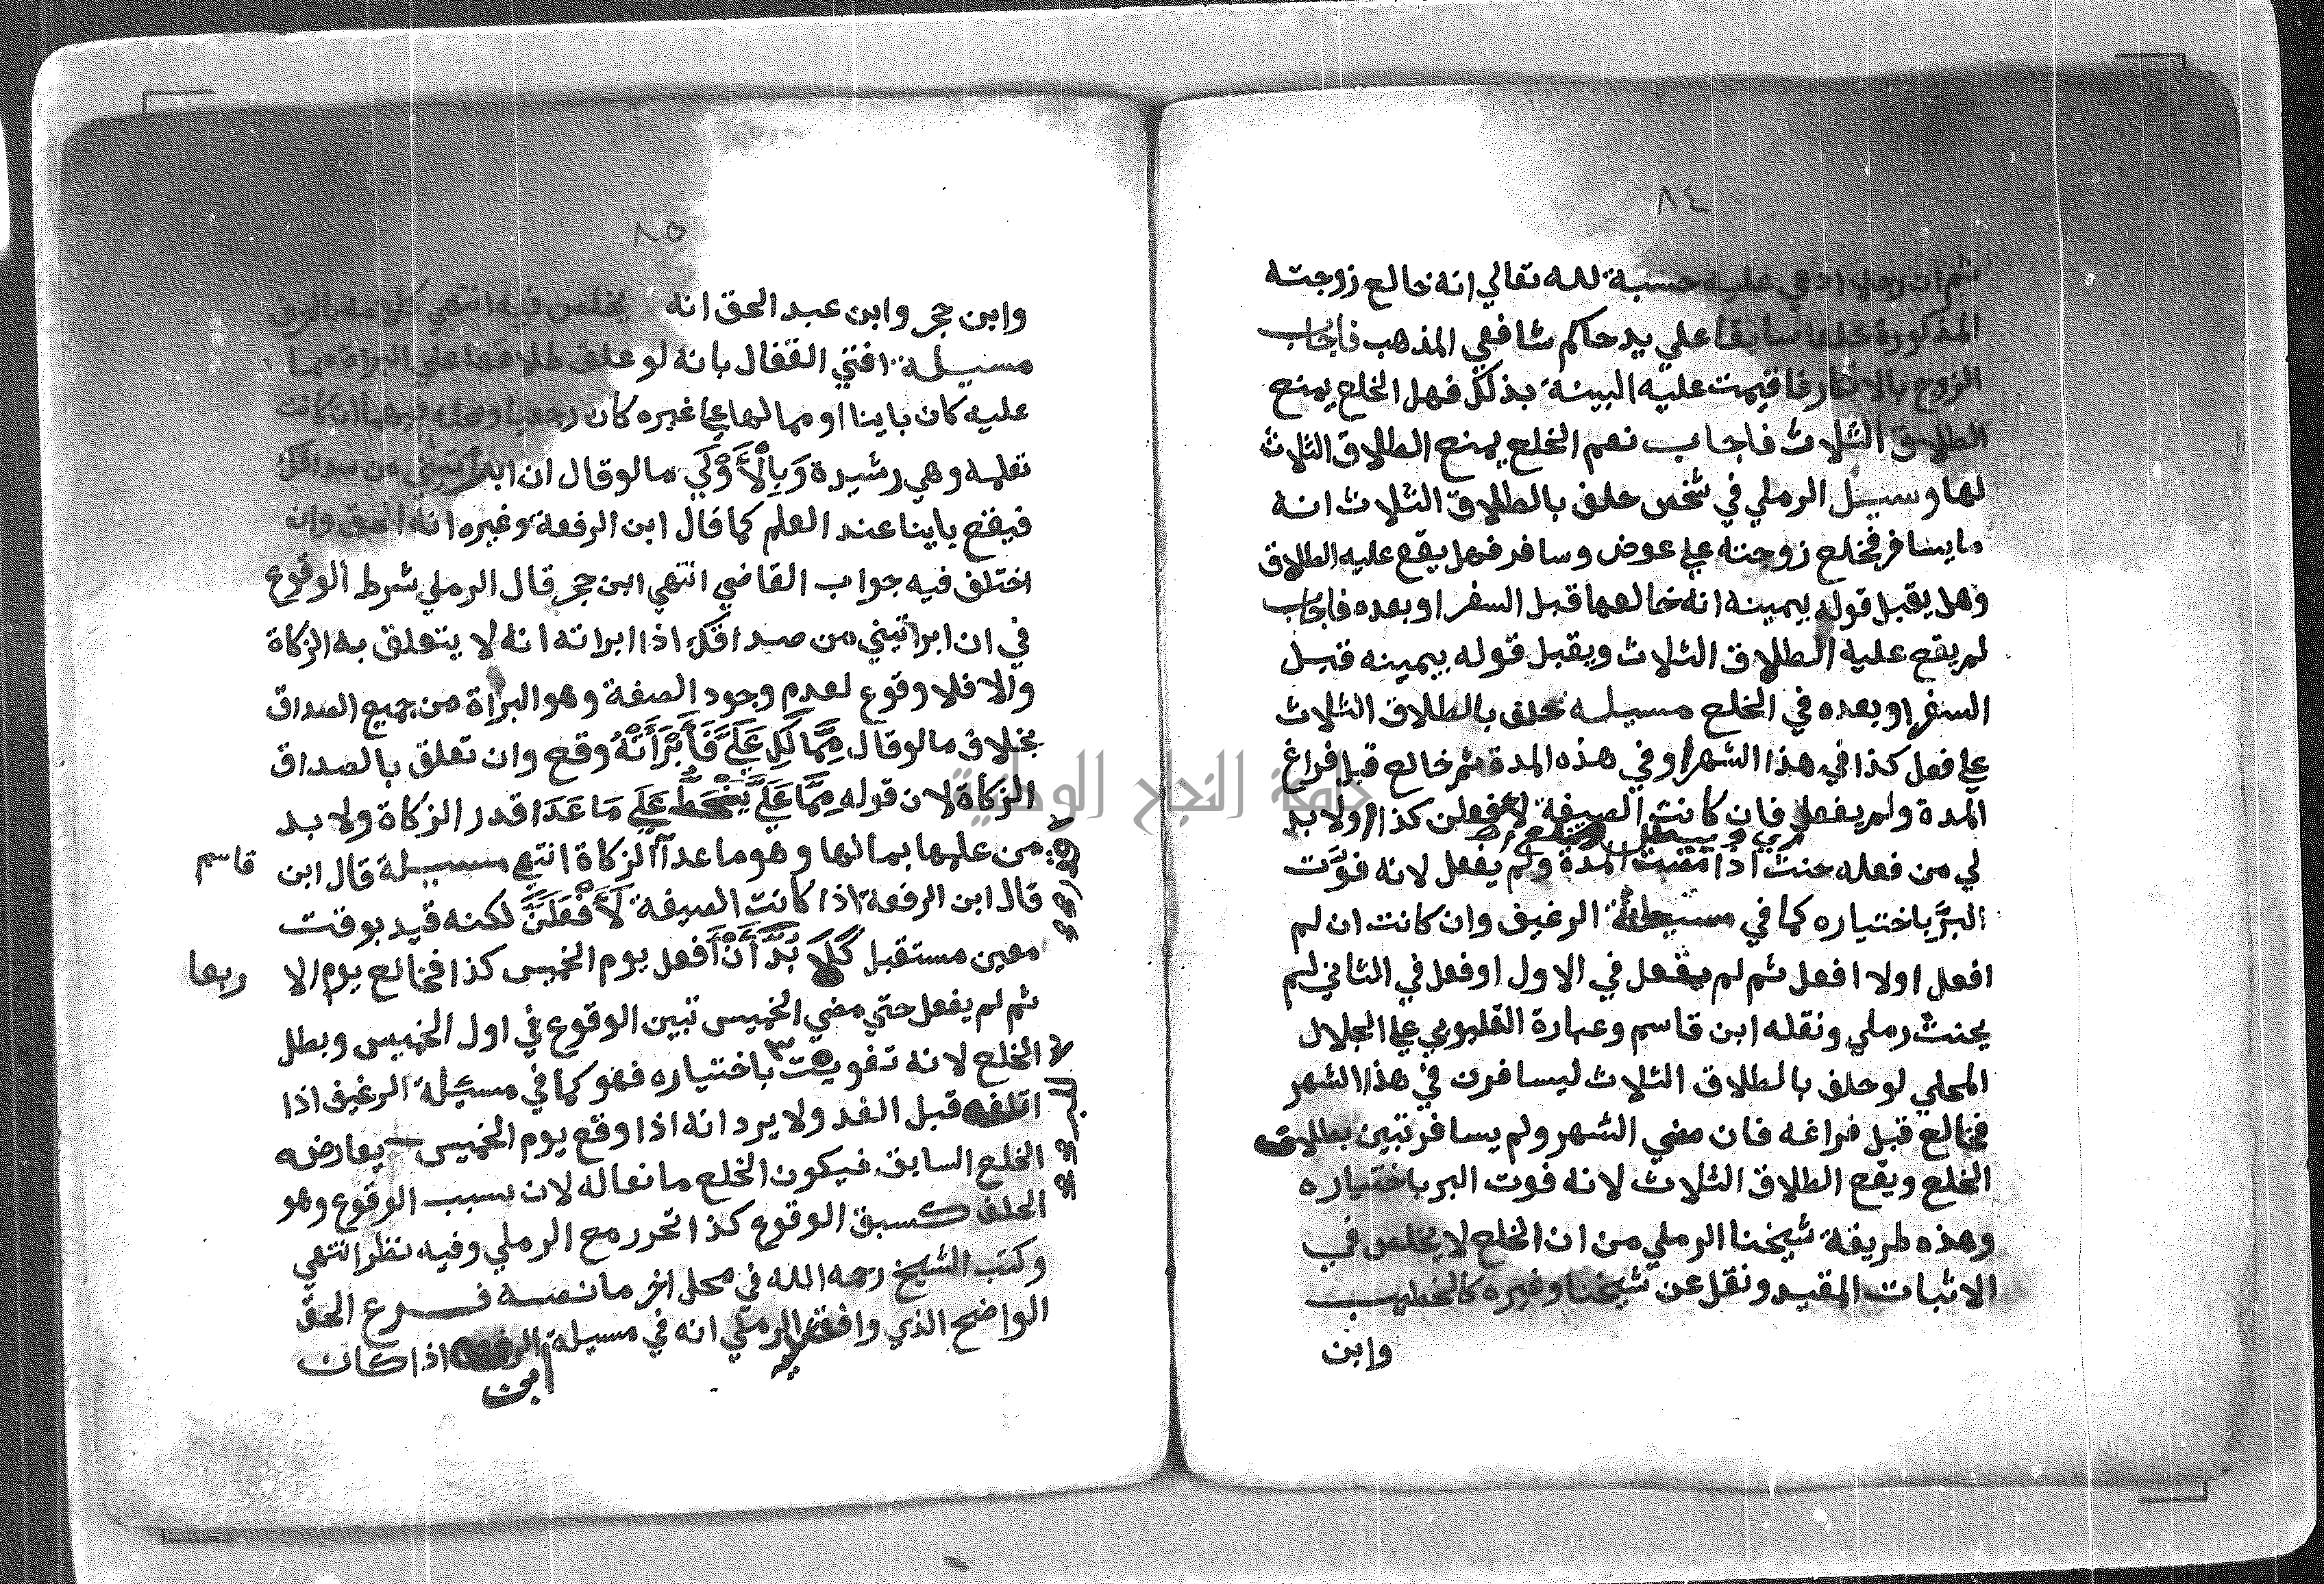 ٨٤
ثم ان رجلا ادعي عليه حسبة لله تعالي انه خالع زوجته
المذكورة خلعا سابقا علي يد حاكم شافعي المذهب فاجاب
الزوج بالانكار فاقيمت عليه البينة بذلك فهل الخلع يمنع
الطلاق الثلاث فاجاب نعم الخلع يمنع الطلاق الثلاث
لها وسيل الرملي في شخص حلف بالطلاق الثلاث انه
ما يسافر فخلع زوجته علي عوض وسافر فهل يقع عليه الطلاق
وهل يقبل قوله بيمينه انه خالعها قبل السفر او بعده فاجاب
لم يقع عليه الطلاق الثلاث ويقبل قوله بيمينه قبل
السفر او بعده في الخلع مسيلة حلف بالطلاق الثلاث
علي فعل كذا في هذا الشهر او في هذه المدة ثم خالع قبل فراغ
المدة ولم يفعل فان كانت الصيغة لافعلن كذا او لا بد
لي من فعله حنث اذا مضت المدة ولم يفعل لانه فوَّت
البرَّ باختياره كما في مسيلة الرغيف وان كانت ان لم
افعل او لا افعل ثم لم يفعل في الاول او فعل في الثاني لم
يحنث رملي ونقله ابن قاسم وعبارة القليوبي علي الجلال
المحلي لو حلف بالطلاق الثلاث ليسافرن في هذا الشهر
فخالع قبل فراغه فان مضي الشهر ولم يسافر تبين بطلان
الخلع ويقع الطلاق الثلاث لانه فوت البر باختياره
وهذه طريقة شيخنا الرملي من ان الخلع لا يخلص في
الاثبات المقيد ونقل عن شيخنا وغيره كالخطيب
وابن
٨٥
وابن حجر وابن عبد الحق انه يخلص فيه انتهي كلامه بالحرف
مسيلة افتي القفال بانه لو علق طلاقها علي البراة مما
عليه كان باينا او مما لها علي غيره كان رجعيا ومحله فيهما ان كانت
تعلمه وهي رشيدة وَبِالْأَوْلَي ما لو قال ان ابرأتيني من صداقك
فيقع باينا عند العلم كما قال ابن الرفعة وغيره انه الحق وان
اختلف فيه جواب القاضي انتهي ابن حجر قال الرملي شرط الوقوع
في ان ابراتيني من صداقك اذا ابراته انه لا يتعلق به الزكاة
والا فلا وقوع لعدم وجود الصفة وهو البراة من جميع الصداق
بخلاف ما لو قال مِمَّا لَكِ عَلَيَّ فَأَبْرَأَتْهُ وقع وان تعلق بالصداق
الزكاة لان قوله مِمَّا عَلَيَّ يَنْحَطُّ عَلَي مَا عَدَا قدر الزكاة ولا بد
من علمها بمالها وهو ما عدا الزكاة انتهي مسيلة قال ابن قاسم
قال ابن الرفعة اذا كانت الصيغة لَأَفْعَلَنَّ لكنه قيد بوقت
معين مستقبل كَلَا بُدَّ أَنْ أَفعل يوم الخميس كذا فخالع يوم الاربعا
ثم لم يفعل حتي مضي الخميس تبين الوقوع في اول الخميس وبطل
الخلع لانه تفويت باختياره فهو كما في مسئلة الرغيف اذا
اتلفه قبل الغد ولا يرد انه اذا وقع يوم الخميس يعارضه
الخلع السابق فيكون الخلع مانعا له لان سبب الوقوع وهو
الحلف كسبق الوقوع كذا تحرر مع الرملي وفيه نظر انتهي
وكتب الشيخ رحمه الله في محل اخر ما نصه فرع الحق
الواضح الذي وافق الرملي انه في مسيلة ابن الرفعة اذا كان
جامعة النجاح الوطنية